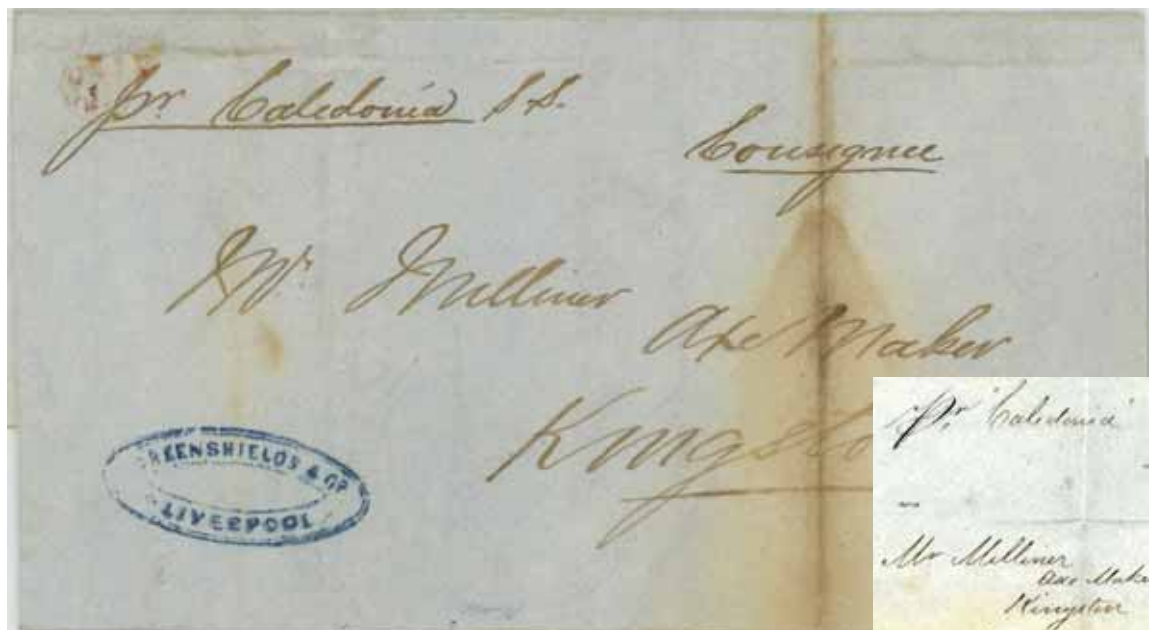 pr Caledonia S S.
Consignee
Mr Milliner
Axe Maker
Kingsto
GREENSHIELDS & Co
LIVERPOOL
Pr "Caledonia"
Mr Milliner
Axe Make
Kingston